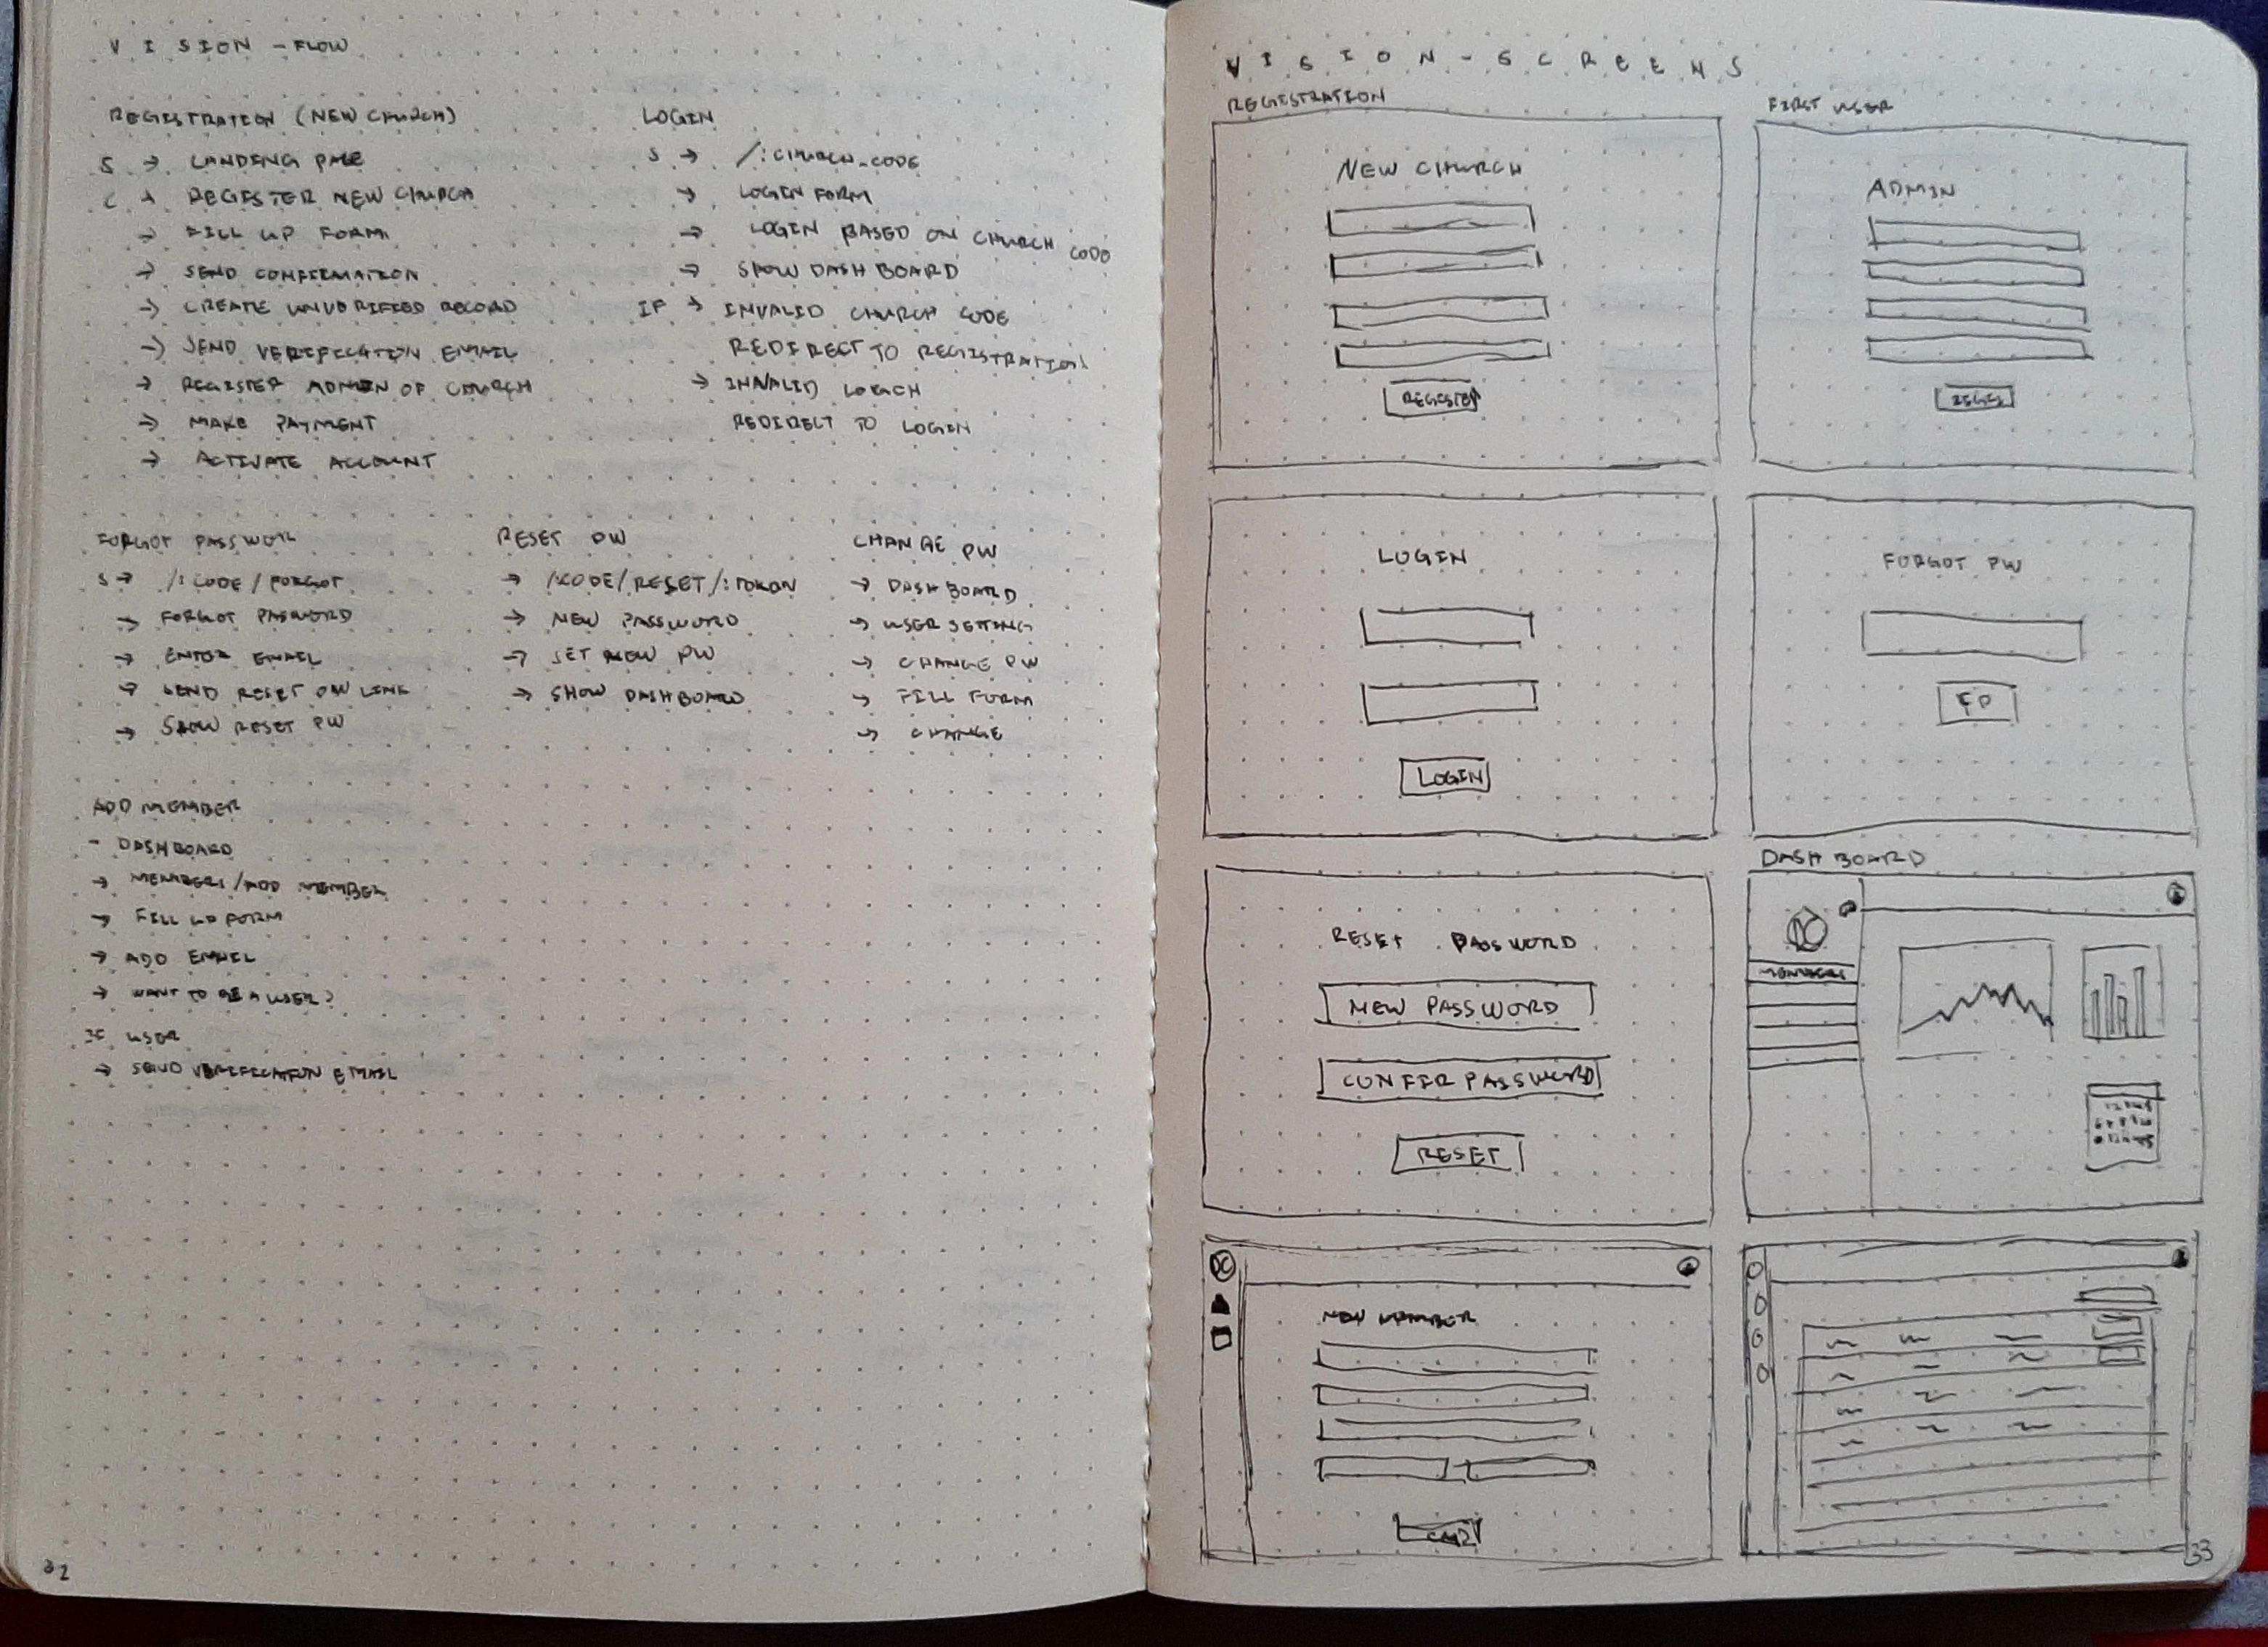 VISION - FLOW
REGISTRATION (NEW CHURCH)
S → LANDING PAGE
C → REGISTER NEW CHURCH
→ FILL UP FORM
→ SEND CONFIRMATION
→ CREATE UNVERIFIED RECORD
→ SEND VERIFICATION EMAIL
→ REGISTER ADMIN OF CHURCH
→ MAKE PAYMENT
→ ACTIVATE ACCOUNT
LOGIN
S → /:CHURCH_CODE
→ LOGIN FORM
→ LOGIN BASED ON CHURCH CODE
→ SHOW DASHBOARD
IF → INVALID CHURCH CODE
REDIRECT TO REGISTRATION
→ INVALID LOGIN
REDIRECT TO LOGIN
FORGOT PASSWOR
S → /:CODE/FORGOT
→ FORGOT PASSWORD
→ ENTER EMAIL
→ SEND RESET PW LINK
→ SHOW RESET PW
RESET PW
→ /:CODE/RESET/:TOKEN
→ NEW PASSWORD
→ SET NEW PW
→ SHOW DASHBOARD
CHANGE PW
→ DASHBOARD
→ USER SETTING
→ CHANGE PW
→ FILL FORM
→ CHANGE
ADD MEMBER
- DASHBOARD
→ MEMBERS/ADD MEMBER
→ FILL UP FORM
→ ADD EMAIL
→ WANT TO BE A USER?
IF USER
→ SEND VERIFICATION EMAIL
32
VISION - SCREENS
REGISTRATION
NEW CHURCH
REGISTER
FIRST USER
ADMIN
REGIS
LOGIN
LOGIN
FORGOT PW
FP
RESET PASSWORD
NEW PASSWORD
CONFIR PASSWORD
RESET
DASHBOARD
DC
MEMBERS
DC
NEW MEMBER
33